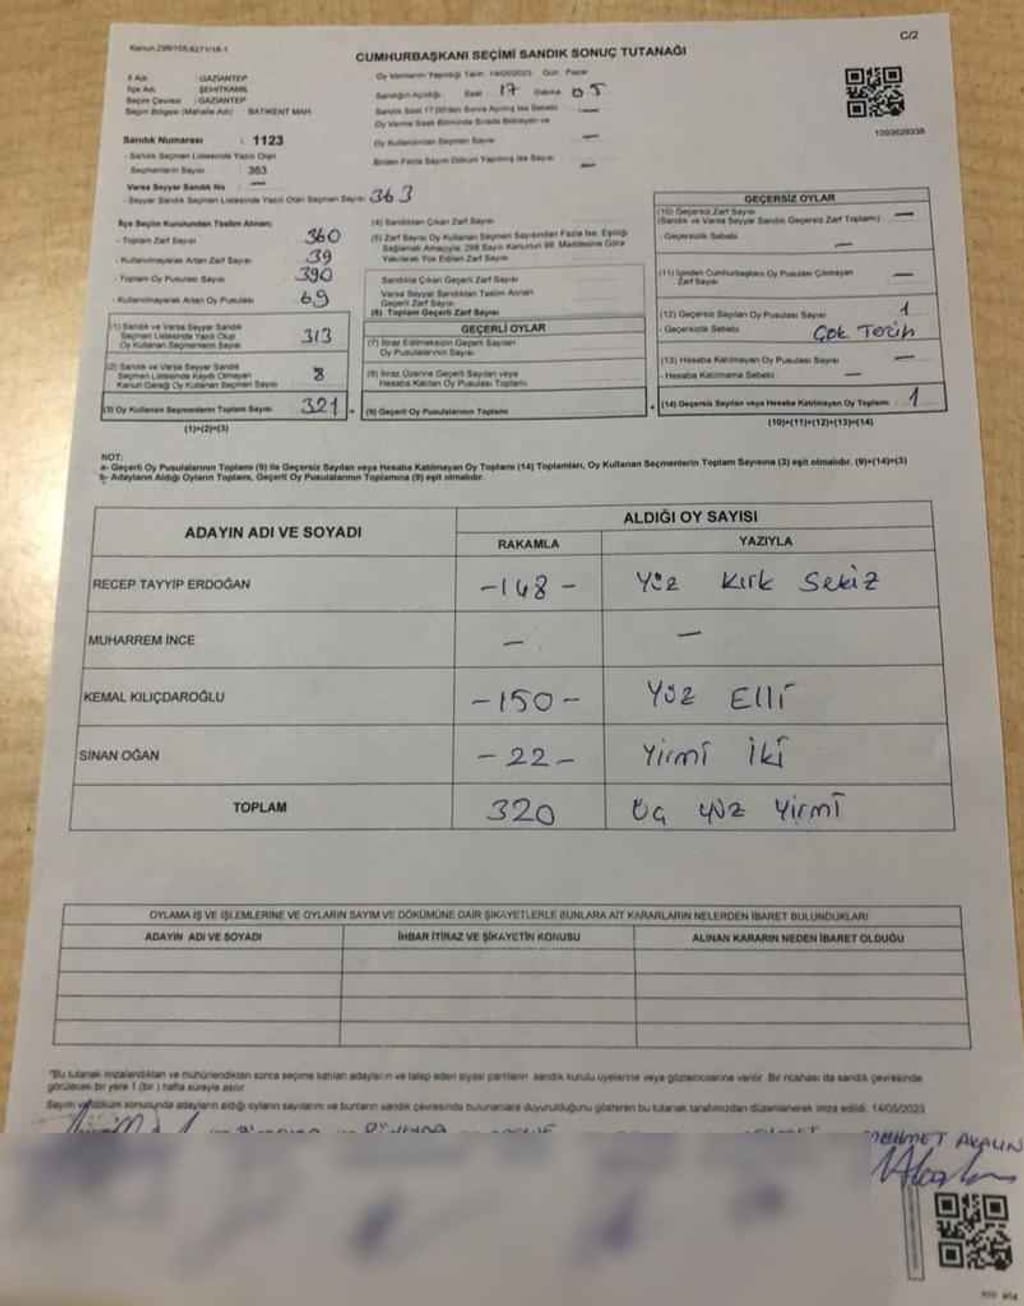 Kanun 298/105,6271/18-1
C/2
CUMHURBAŞKANI SEÇİMİ SANDIK SONUÇ TUTANAĞI
İl Adı : GAZİANTEP
İlçe Adı : ŞEHİTKAMİL
Seçim Çevresi : GAZİANTEP
Seçim Bölgesi (Mahalle Adı) BATIKENT MAH
Oy Vermenin Yapıldığı Tarih: 14/05/2023 Gün: Pazar
Sandığın Açıldığı Saat 17 Dakika 05
Oy Kullandıran Seçmen Sayısı —
Birden Fazla Sayım Döküm Yapılmış İse Sayısı —
Sandık Numarası : 1123
- Sandık Seçmen Listesinde Yazılı Olan
Seçmenlerin Sayısı 363
Varsa Seyyar Sandık No —
- Seyyar Sandık Seçmen Listesinde Yazılı Olan Seçmen Sayısı 363
İlçe Seçim Kurulundan Teslim Alınan;
- Toplam Zarf Sayısı 360
- Kullanılmayarak Artan Zarf Sayısı 39
- Toplam Oy Pusulası Sayısı 390
- Kullanılmayarak Artan Oy Pusulası 69
(1) Sandık ve Varsa Seyyar Sandık
Seçmen Listesinde Yazılı Olup
Oy Kullanan Seçmenlerin Sayısı 313
(2) Sandık ve Varsa Seyyar Sandık
Seçmen Listesinde Kaydı Olmayan
Kanun Gereği Oy Kullanan Seçmen Sayısı 8
(3) Oy Kullanan Seçmenlerin Toplam Sayısı 321
(1)+(2)=(3)
(4) Sandıktan Çıkan Zarf Sayısı
(5) Zarf Sayısı Oy Kullanan Seçmen Sayısından Fazla İse, Eşitliği
Sağlamak Amacıyla 298 Sayılı Kanunun 98. Maddesine Göre
Yakılarak Yok Edilen Zarf Sayısı
Sandıkta Çıkan Geçerli Zarf Sayısı
Varsa Seyyar Sandıktan Teslim Alınan
Geçerli Zarf Sayısı
(6) Toplam Geçerli Zarf Sayısı
GEÇERLİ OYLAR
(7) İtiraz Edilmeksizin Geçerli Sayılan
Oy Pusulalarının Sayısı
(8) İtiraz Üzerine Geçerli Sayılan veya
Hesaba Katılan Oy Pusulası Toplamı
(9) Geçerli Oy Pusulalarının Toplamı
GEÇERSİZ OYLAR
(10) Geçersiz Zarf Sayısı
(Sandık ve Varsa Seyyar Sandık Geçersiz Zarf Toplamı) —
- Geçersizlik Sebebi —
(11) İçinden Cumhurbaşkanı Oy Pusulası Çıkmayan
Zarf Sayısı —
(12) Geçersiz Sayılan Oy Pusulası Sayısı 1
- Geçersizlik Sebebi Çok Tercih
(13) Hesaba Katılmayan Oy Pusulası Sayısı —
- Hesaba Katılmama Sebebi —
(14) Geçersiz Sayılan veya Hesaba Katılmayan Oy Toplamı : 1
(10)+(11)+(12)+(13)=(14)
NOT:
a- Geçerli Oy Pusulalarının Toplamı (9) ile Geçersiz Sayılan veya Hesaba Katılmayan Oy Toplamı (14) Toplamları, Oy Kullanan Seçmenlerin Toplam Sayısına (3) eşit olmalıdır. (9)+(14)=(3)
b- Adayların Aldığı Oyların Toplamı, Geçerli Oy Pusulalarının Toplamına (9) eşit olmalıdır.
ADAYIN ADI VE SOYADI
ALDIĞI OY SAYISI
RAKAMLA YAZIYLA
RECEP TAYYİP ERDOĞAN -148- Yüz Kırk Sekiz
MUHARREM İNCE — —
KEMAL KILIÇDAROĞLU -150- Yüz Elli
SİNAN OĞAN -22- Yirmi İki
TOPLAM 320 Üç yüz Yirmi
OYLAMA İŞ VE İŞLEMLERİNE VE OYLARIN SAYIM VE DÖKÜMÜNE DAİR ŞİKAYETLERLE BUNLARA AİT KARARLARIN NELERDEN İBARET BULUNDUKLARI
ADAYIN ADI VE SOYADI İHBAR İTİRAZ VE ŞİKAYETİN KONUSU ALINAN KARARIN NEDEN İBARET OLDUĞU
"Bu tutanak imzalandıktan ve mühürlendikten sonra seçime katılan adayların ve talep eden siyasi partilerin sandık kurulu üyelerine veya gözlemcilerine verilir. Bir nüshası da sandık çevresinde
görülecek bir yere 1 (bir) hafta süreyle asılır.
Sayım ve döküm sonucunda adayların aldığı oyların sayılarını ve bunların sandık çevresinde bulunanlara duyurulduğunu gösteren bu tutanak tarafımızdan düzenlenerek imza edildi. 14/05/2023
MEHMET AKALIN